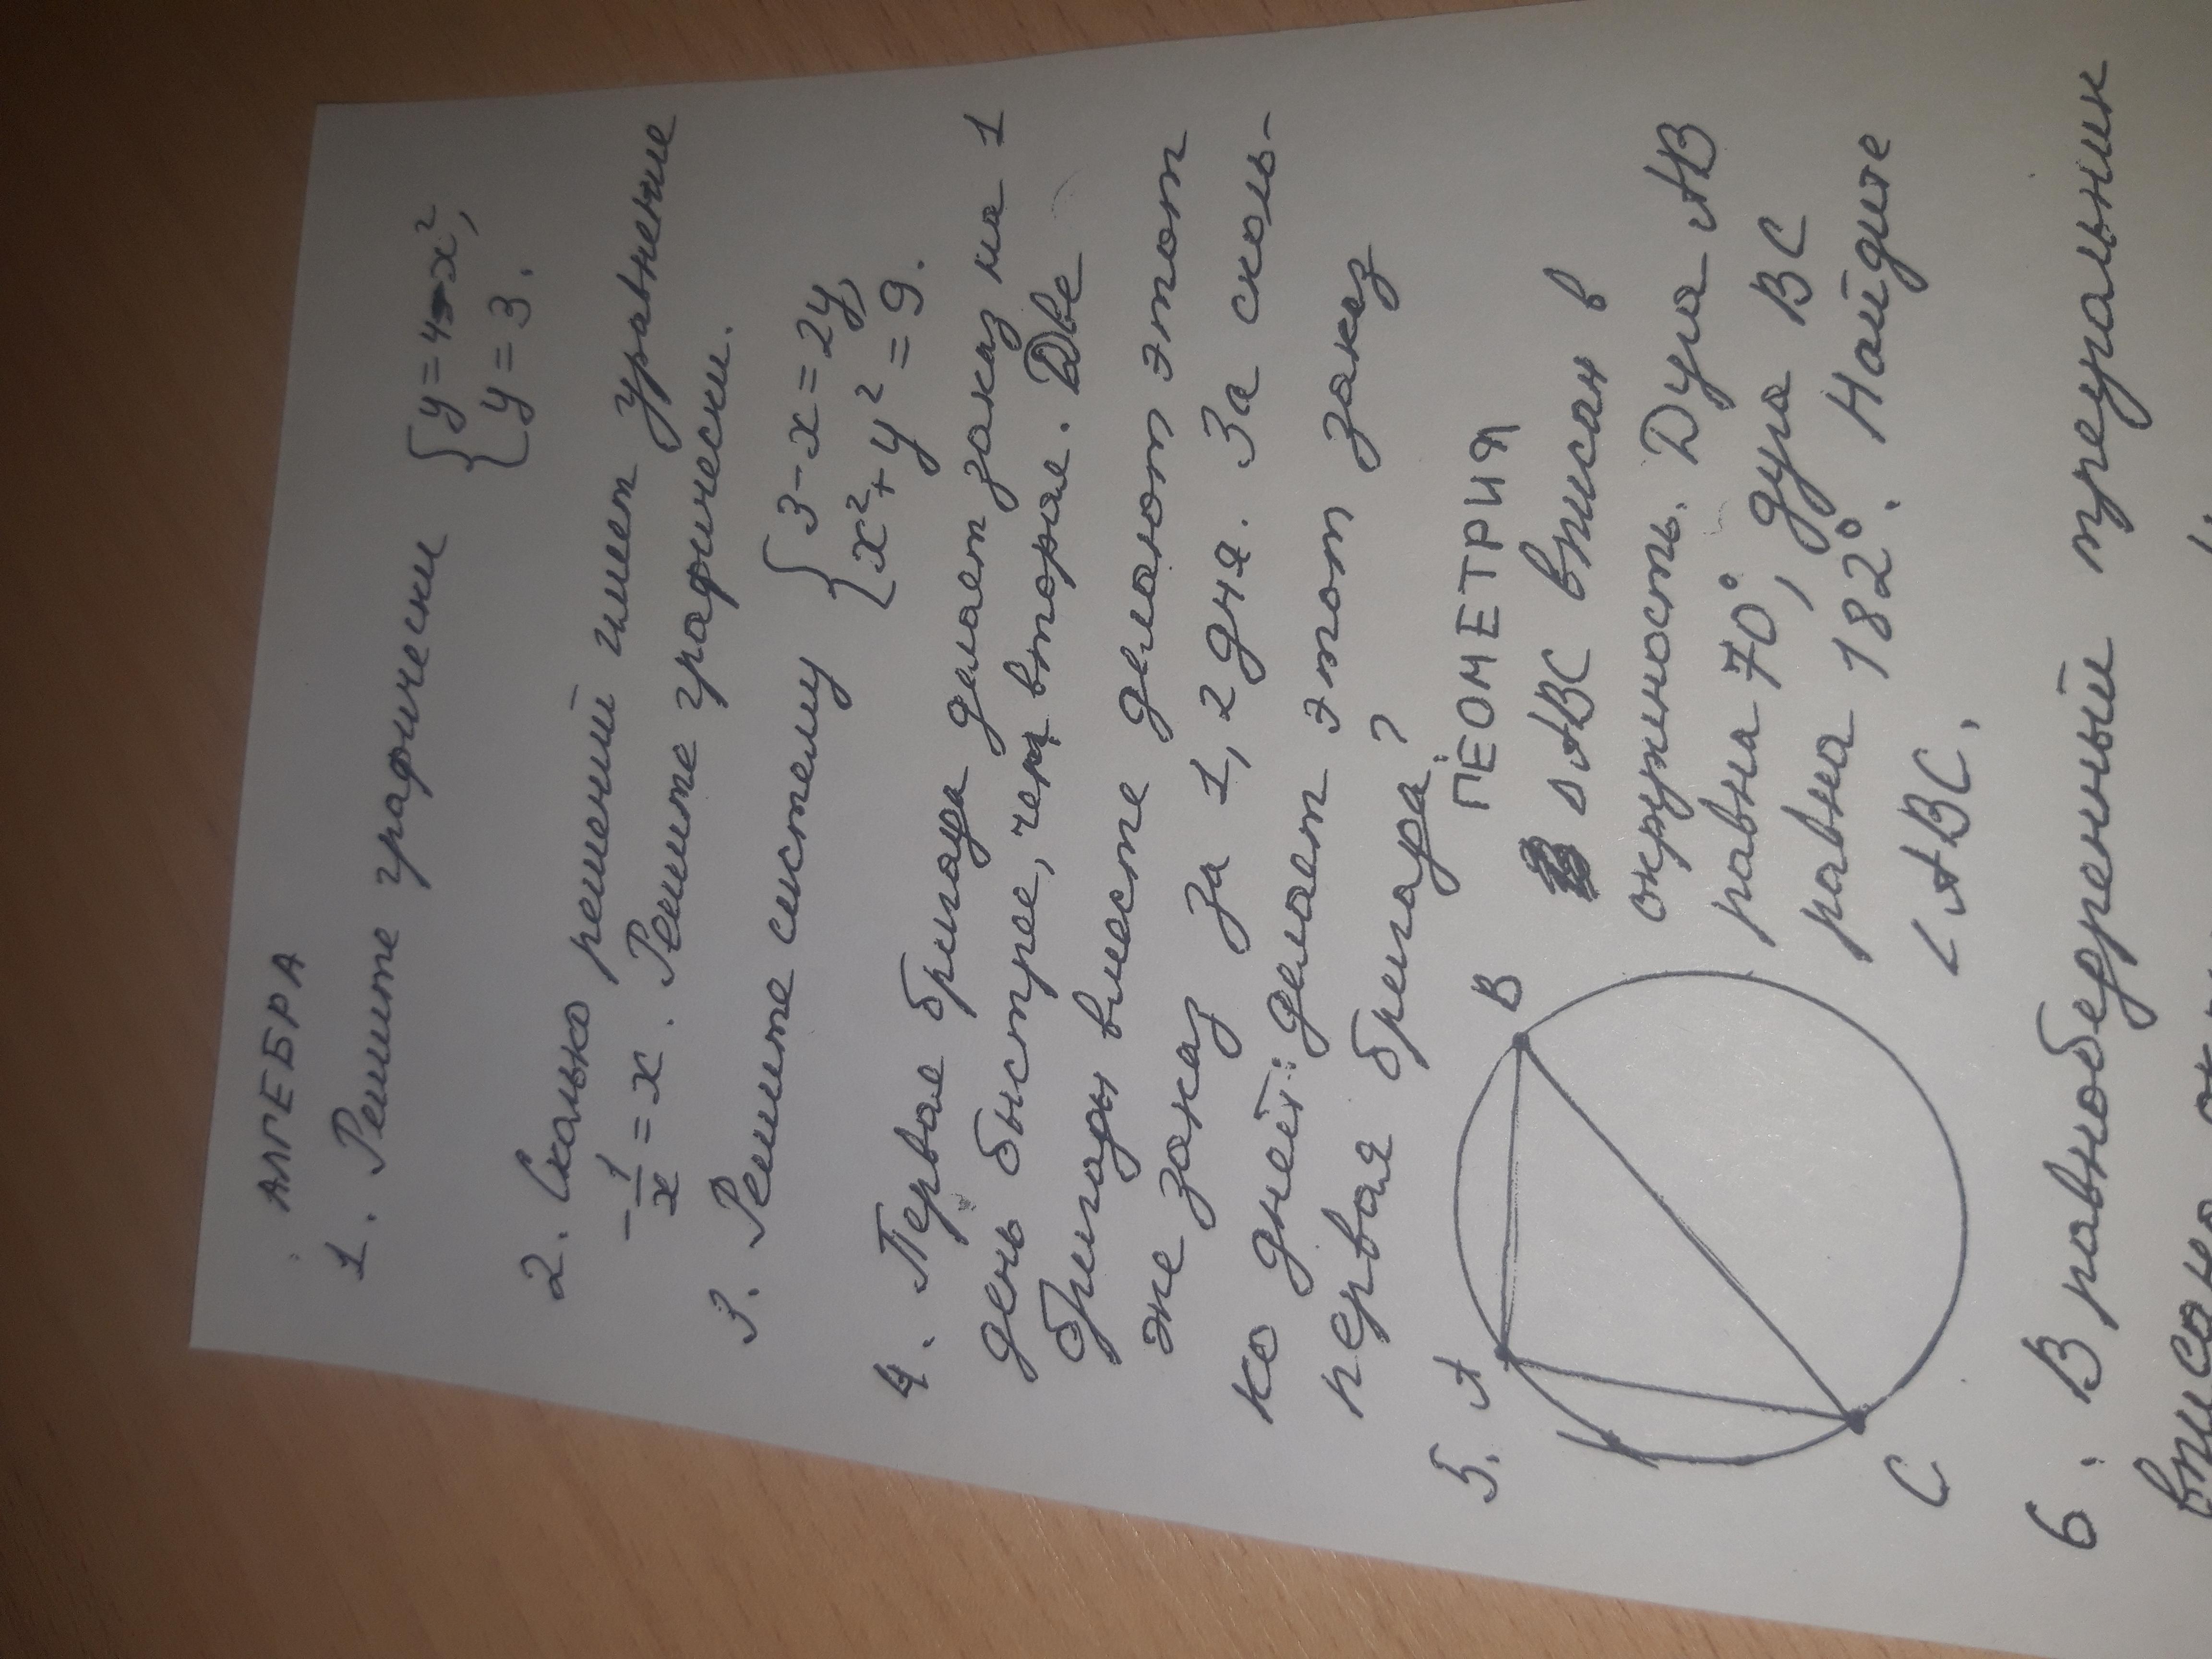 АЛГЕБРА
1. Решите графически { y = 4 - x²,
y = 3.
2. Сколько решений имеет уравнение
-1/x = x. Решите графически.
3. Решите систему { 3 - x = 2y,
x² + y² = 9.
4. Первая бригада делает заказ на 1
день быстрее, чем вторая. Две
бригады вместе делают этот
же заказ за 1,2 дня. За сколь-
ко дней делает этот заказ
первая бригада?
ГЕОМЕТРИЯ
5. A B C
△ABC вписан в
окружность. Дуга AB
равна 70°, дуга BC
равна 182°. Найдите
∠ABC.
6. В равнобедренный треугольник